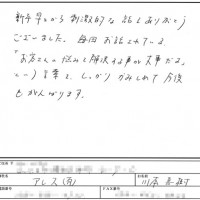 新年早々から刺激的な話をありがとう
ございました。毎回お話されている
「お客さんの悩みを解決する事が大事だよ」
という言葉を、しっかりかみしめて今後
もがんばります。
アレス(有)
川原